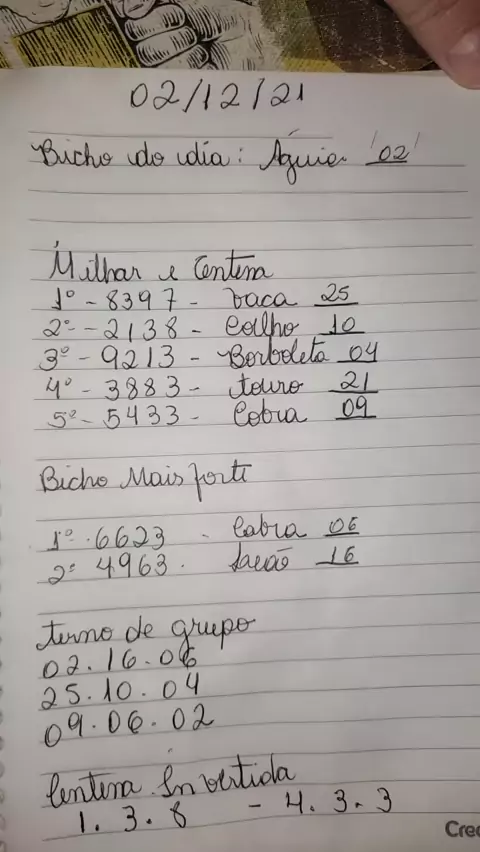 02/12/21
Bicho do dia: Águia 02
Milhar e Centena
1º - 8397 - vaca 25
2º - 2138 - Coelho 10
3º - 9213 - Borboleta 04
4º - 3883 - touro 21
5º - 5433 - Cobra 09
Bicho Mais forte
1º . 6623 - Cabra 06
2º 4963 . Leão 16
terno de grupo
02.16.06
25.10.04
09.06.02
Centena Invertida
1.3.8 - 4.3.3
Cre